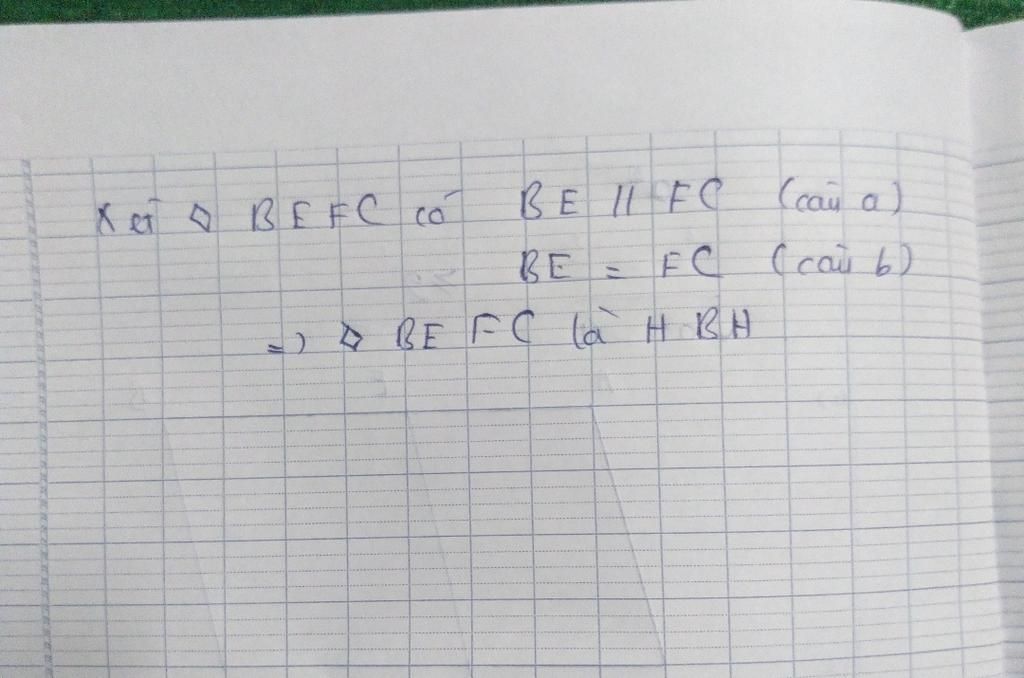 Xét ◇ BEFC có BE // FC (câu a)
BE = FC (câu b)
=> ◇ BEFC là HBH